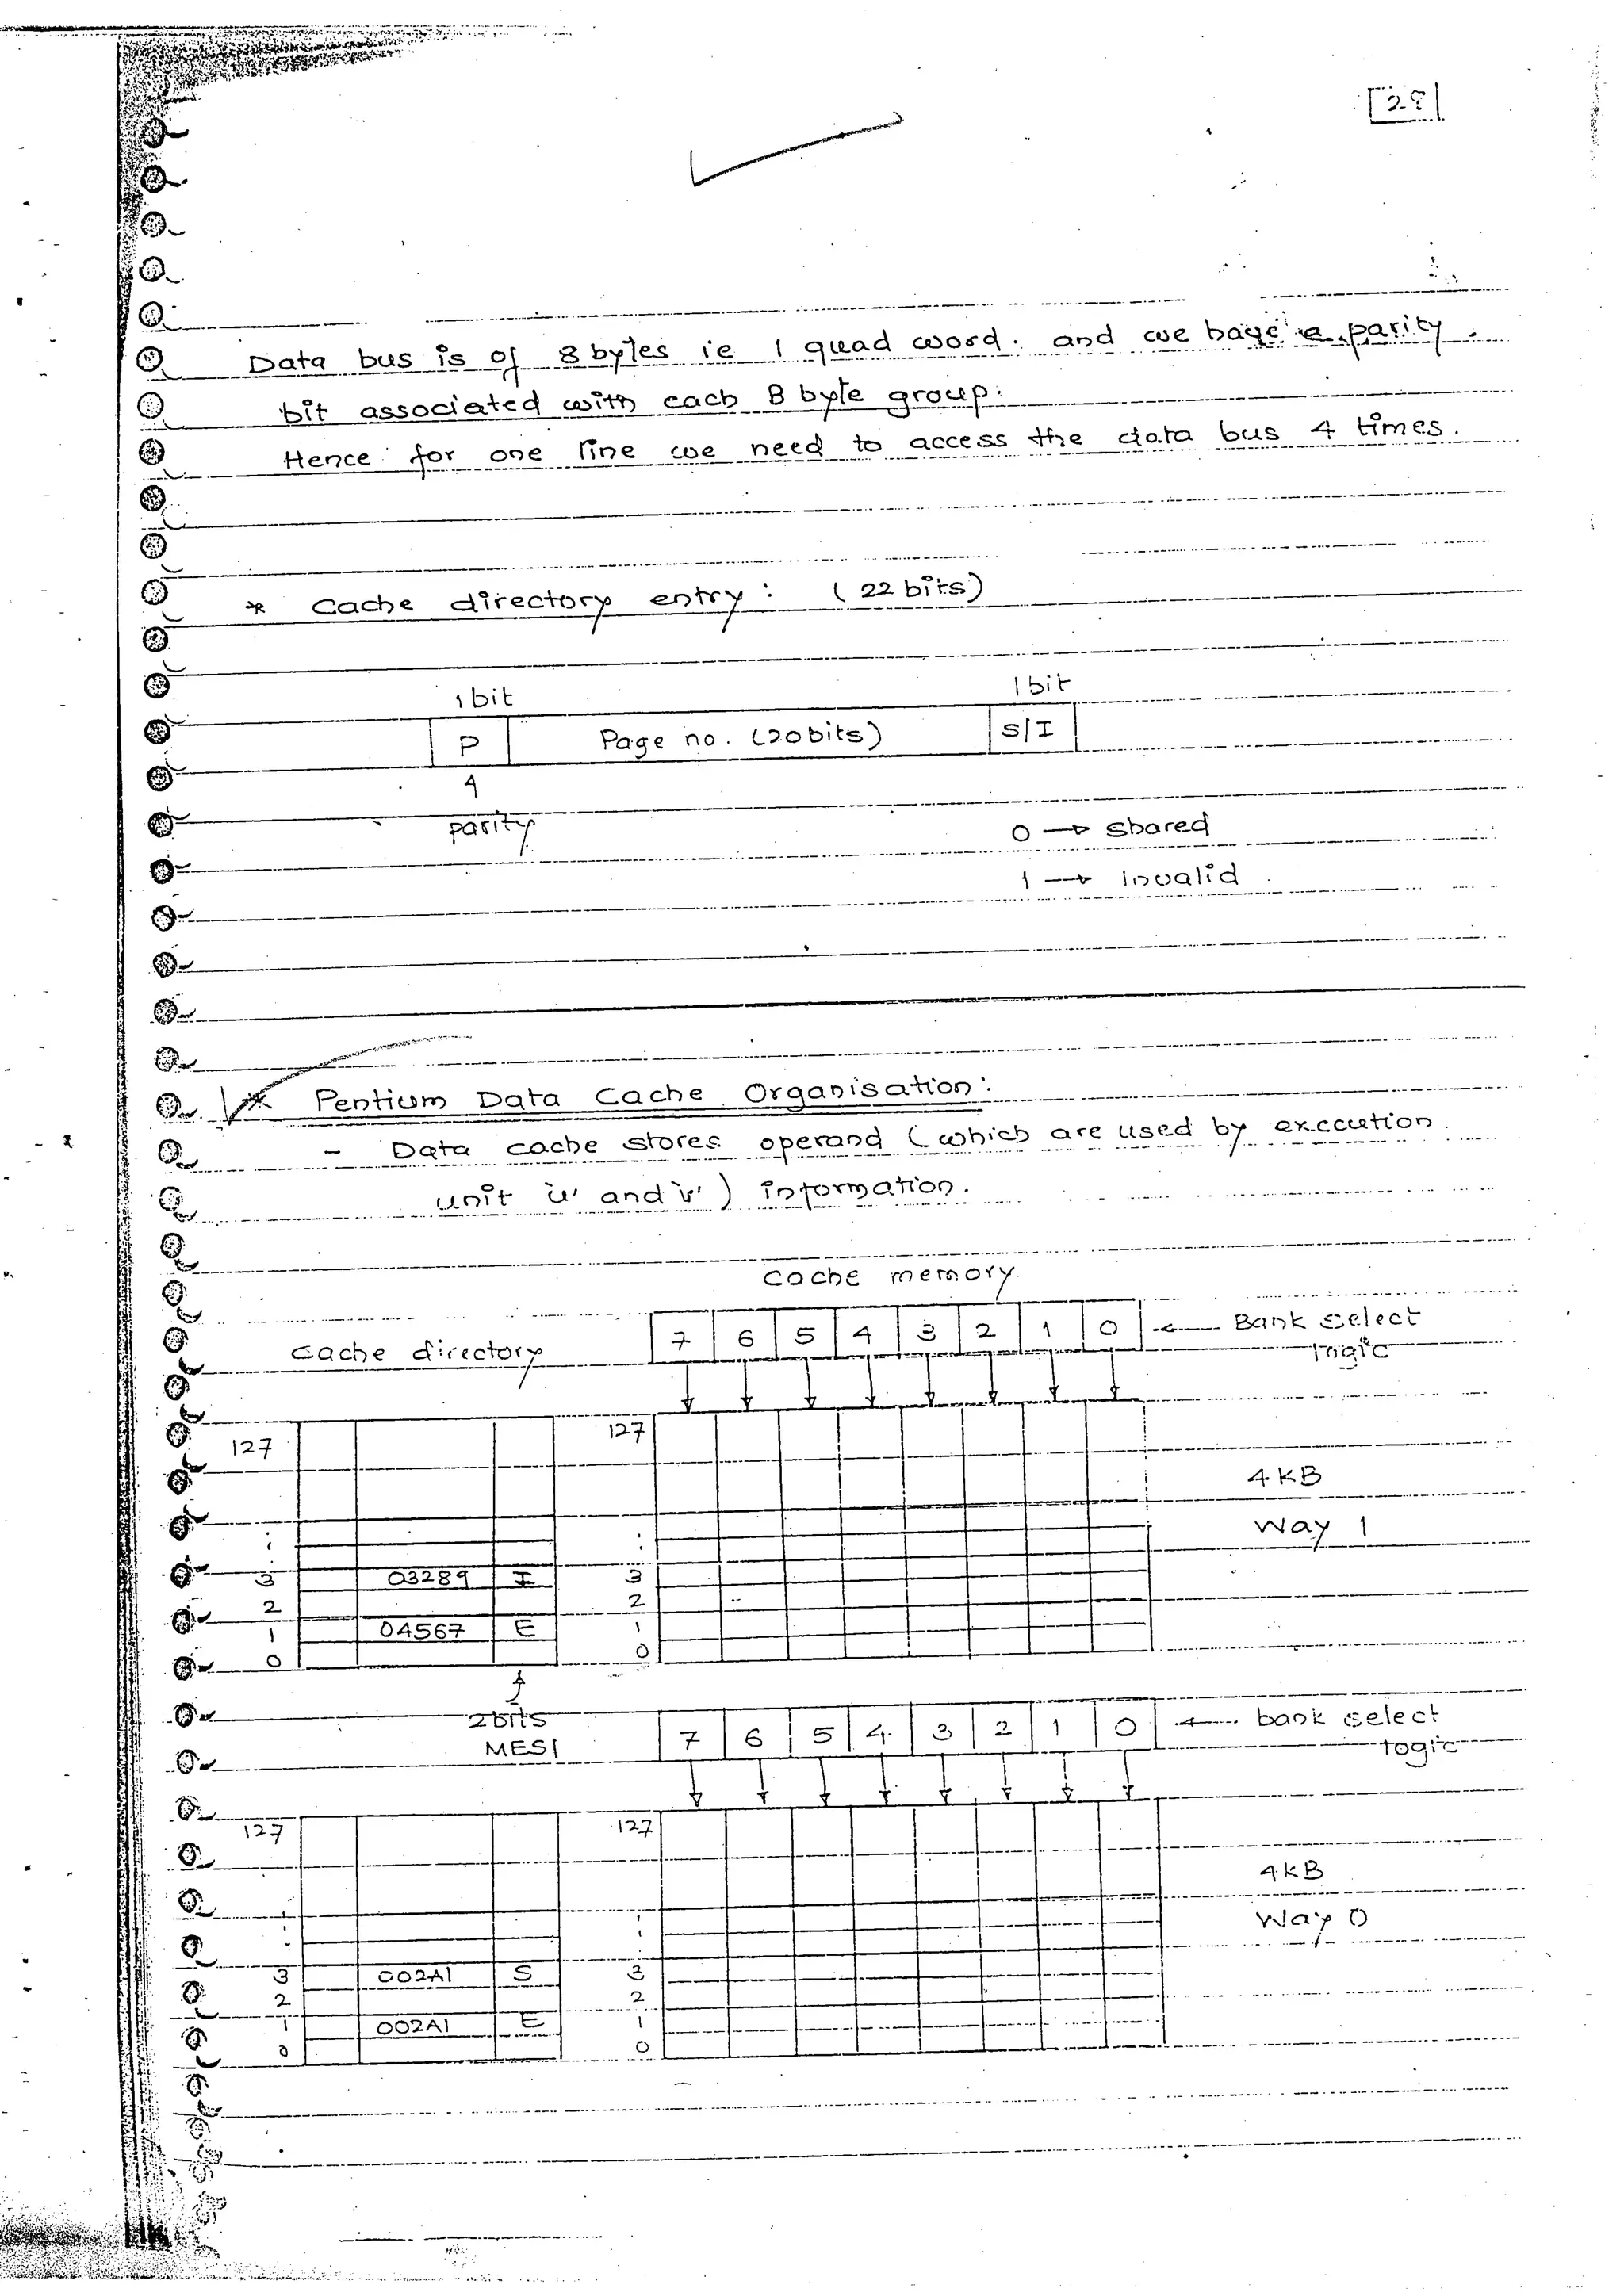 28
Data bus is of 8 bytes ie 1 quad word. and we have a parity
bit associated with each 8 byte group.
Hence for one line we need to access the data bus 4 times.
* Cache directory entry : (22 bits)
1 bit 1 bit
P Page no. (20 bits) S/I
parity
0 → shared
1 → Invalid
* Pentium Data Cache Organisation :
- Data cache stores operand (which are used by execution
unit 'u' and 'v') information.
cache memory
7 6 5 4 3 2 1 0 ← Bank select
cache directory logic
127 127
4 KB
Way 1
3 03289 I 3
2 2
1 04567 E 1
0 0
2 bits
MESI
7 6 5 4 3 2 1 0 ← bank select
logic
127 127
4 KB
Way 0
3 002A1 S 3
2 2
1 002A1 E 1
0 0